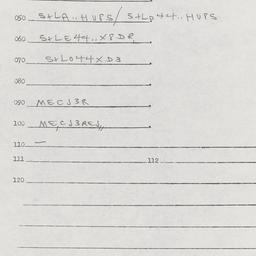 050 S+LA..HUPS/ S+LD44..HUPS
060 S+LE44..XPDR
070 S+LO44XD3
080
090 MECJ3R
100 MECJ3REJ
110 —
111 112
120